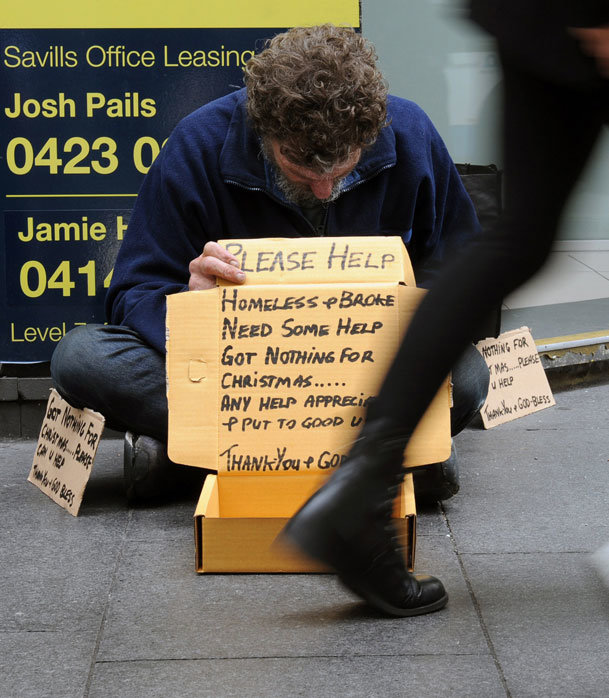 Savills Office Leasing
Josh Pails
0423 0
Jamie
0414
Level
PLEASE HELP
HOMELESS + BROKE
NEED SOME HELP
GOT NOTHING FOR
CHRISTMAS.....
ANY HELP
+ PUT TO GOOD
THANKYOU +
GOT NOTHING
FOR
CHRISTMAS....PLEASE
CAN U HELP
THANKYOU + GOD BLESS
NOTHING FOR
MAS....PLEASE
U HELP
THANKYOU + GOD-BLESS